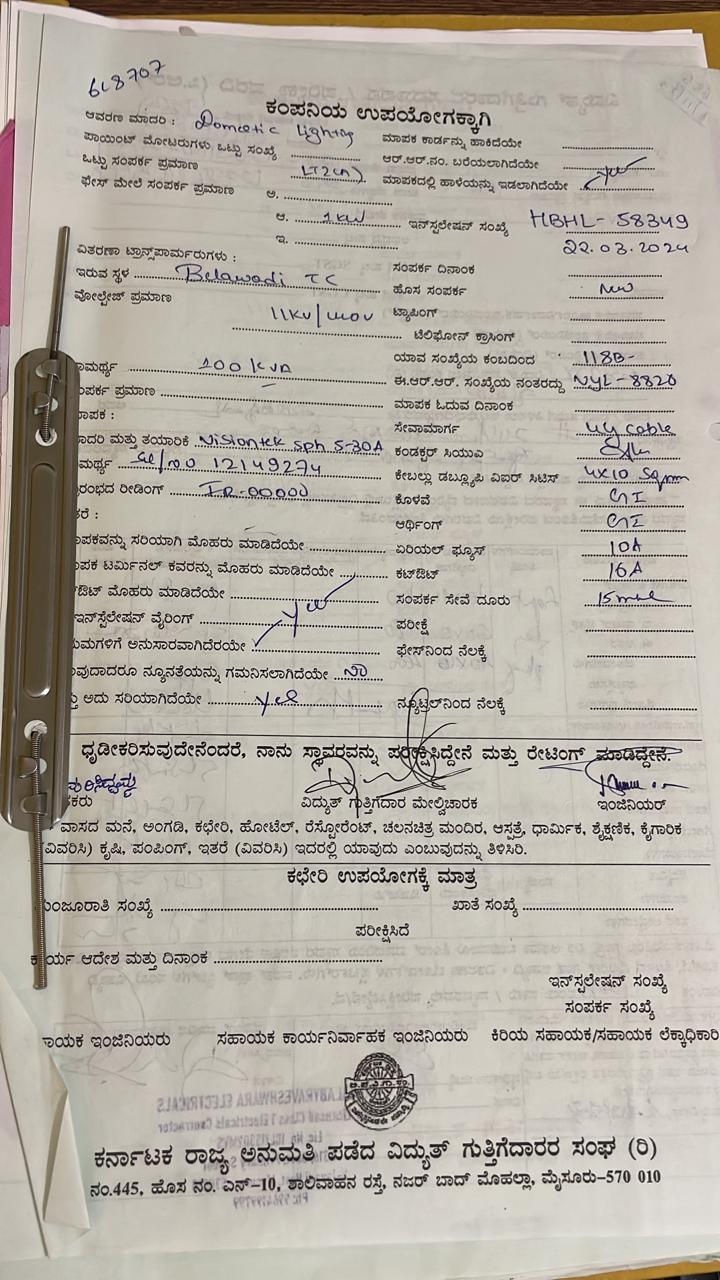 618707
ಕಂಪನಿಯ ಉಪಯೋಗಕ್ಕಾಗಿ
ಆವರಣ ಮಾದರಿ : Domestic lighting ಮಾಪಕ ಕಾರ್ಡನ್ನು ಹಾಕಿದೆಯೇ
ಪಾಯಿಂಟ್ ಮೋಟರುಗಳು ಒಟ್ಟು ಸಂಖ್ಯೆ ಆರ್.ಆರ್.ನಂ. ಬರೆಯಲಾಗಿದೆಯೇ
ಒಟ್ಟು ಸಂಪರ್ಕ ಪ್ರಮಾಣ LT2(a) ಮಾಪಕದಲ್ಲಿ ಹಾಳೆಯನ್ನು ಇಡಲಾಗಿದೆಯೇ yes
ಫೇಸ್ ಮೇಲೆ ಸಂಪರ್ಕ ಪ್ರಮಾಣ ಅ.
ಆ. 1kw ಇನ್‌ಸ್ಟಲೇಷನ್ ಸಂಖ್ಯೆ HBHL- 58349
ಇ. 22.03.2024
ವಿತರಣಾ ಟ್ರಾನ್ಸ್‌ಪಾರ್ಮರುಗಳು :
ಇರುವ ಸ್ಥಳ Belawadi TC ಸಂಪರ್ಕ ದಿನಾಂಕ
ವೋಲ್ಟೇಜ್ ಪ್ರಮಾಣ ಹೊಸ ಸಂಪರ್ಕ New
11KV/ ಟ್ಯಾಪಿಂಗ್
ಟೆಲಿಫೋನ್ ಕ್ರಾಸಿಂಗ್
ಾಮರ್ಥ್ಯ 100 KVA ಯಾವ ಸಂಖ್ಯೆಯ ಕಂಬದಿಂದ 118B-
ಂಪರ್ಕ ಪ್ರಮಾಣ ಈ.ಆರ್.ಆರ್. ಸಂಖ್ಯೆಯ ನಂತರದ್ದು NYL-8820
ಾಪಕ : ಮಾಪಕ ಓದುವ ದಿನಾಂಕ
ಸೇವಾಮಾರ್ಗ UG cable
ಾದರಿ ಮತ್ತು ತಯಾರಿಕೆ Visiontek sph 5-30A ಕಂಡಕ್ಟರ್ ಸಿಯುಎ
ಮರ್ಥ್ಯ Sl/no 12149274 ಕೇಬಲ್ಲು ಡಬ್ಲ್ಯೂಪಿ ವಿಐರ್ ಸಿಟಿಸ್ 4x10 Sqmm
ಾರಂಭದ ರೀಡಿಂಗ್ IR-00000 ಕೊಳವೆ GI
ತರೆ : ಆರ್ಥಿಂಗ್ GI
ಾಪಕವನ್ನು ಸರಿಯಾಗಿ ಮೊಹರು ಮಾಡಿದೆಯೇ ಏರಿಯಲ್ ಫ್ಯೂಸ್ 10A
ಾಪಕ ಟರ್ಮಿನಲ್ ಕವರನ್ನು ಮೊಹರು ಮಾಡಿದೆಯೇ ಕಟ್‌ಔಟ್ 16A
ಔಟ್ ಮೊಹರು ಮಾಡಿದೆಯೇ ಸಂಪರ್ಕ ಸೇವೆ ದೂರು 15
ಇನ್‌ಸ್ಟಲೇಷನ್ ವೈರಿಂಗ್ yes ಪರೀಕ್ಷೆ
ಮಗಳಿಗೆ ಅನುಸಾರವಾಗಿದೆರಯೇ ಫೇಸ್‌ನಿಂದ ನೆಲಕ್ಕೆ
ಾವುದಾದರೂ ನ್ಯೂನತೆಯನ್ನು ಗಮನಿಸಲಾಗಿದೆಯೇ no
್ತು ಅದು ಸರಿಯಾಗಿದೆಯೇ yes ನ್ಯೂಟ್ರಲ್‌ನಿಂದ ನೆಲಕ್ಕೆ
ಧೃಡೀಕರಿಸುವುದೇನೆಂದರೆ, ನಾನು ಸ್ಥಾವರವನ್ನು ಪರೀಕ್ಷಿಸಿದ್ದೇನೆ ಮತ್ತು ರೇಟಿಂಗ್ ಮಾಡಿದ್ದೇನೆ.
ಕರು ವಿದ್ಯುತ್ ಗುತ್ತಿಗೆದಾರ ಮೇಲ್ವಿಚಾರಕ ಇಂಜಿನಿಯರ್
ವಾಸದ ಮನೆ, ಅಂಗಡಿ, ಕಛೇರಿ, ಹೋಟೆಲ್, ರೆಸ್ಟೋರೆಂಟ್, ಚಲನಚಿತ್ರ ಮಂದಿರ, ಆಸ್ಪತ್ರೆ, ಧಾರ್ಮಿಕ, ಶೈಕ್ಷಣಿಕ, ಕೈಗಾರಿಕ
(ವಿವರಿಸಿ) ಕೃಷಿ, ಪಂಪಿಂಗ್, ಇತರೆ (ವಿವರಿಸಿ) ಇದರಲ್ಲಿ ಯಾವುದು ಎಂಬುವುದನ್ನು ತಿಳಿಸಿರಿ.
ಕಛೇರಿ ಉಪಯೋಗಕ್ಕೆ ಮಾತ್ರ
ಮಂಜೂರಾತಿ ಸಂಖ್ಯೆ ಖಾತೆ ಸಂಖ್ಯೆ
ಪರೀಕ್ಷಿಸಿದೆ
ಕಾರ್ಯ ಆದೇಶ ಮತ್ತು ದಿನಾಂಕ
ಇನ್‌ಸ್ಟಲೇಷನ್ ಸಂಖ್ಯೆ
ಸಂಪರ್ಕ ಸಂಖ್ಯೆ
ಾಯಕ ಇಂಜಿನಿಯರು ಸಹಾಯಕ ಕಾರ್ಯನಿರ್ವಾಹಕ ಇಂಜಿನಿಯರು ಕಿರಿಯ ಸಹಾಯಕ/ಸಹಾಯಕ ಲೆಕ್ಕಾಧಿಕಾರಿ
ಕರ್ನಾಟಕ ರಾಜ್ಯ ಅನುಮತಿ ಪಡೆದ ವಿದ್ಯುತ್ ಗುತ್ತಿಗೆದಾರರ ಸಂಘ (ರಿ)
ನಂ.445, ಹೊಸ ನಂ. ಎನ್-10, ಶಾಲಿವಾಹನ ರಸ್ತೆ, ನಜರ್ ಬಾದ್ ಮೊಹಲ್ಲಾ, ಮೈಸೂರು-570 010